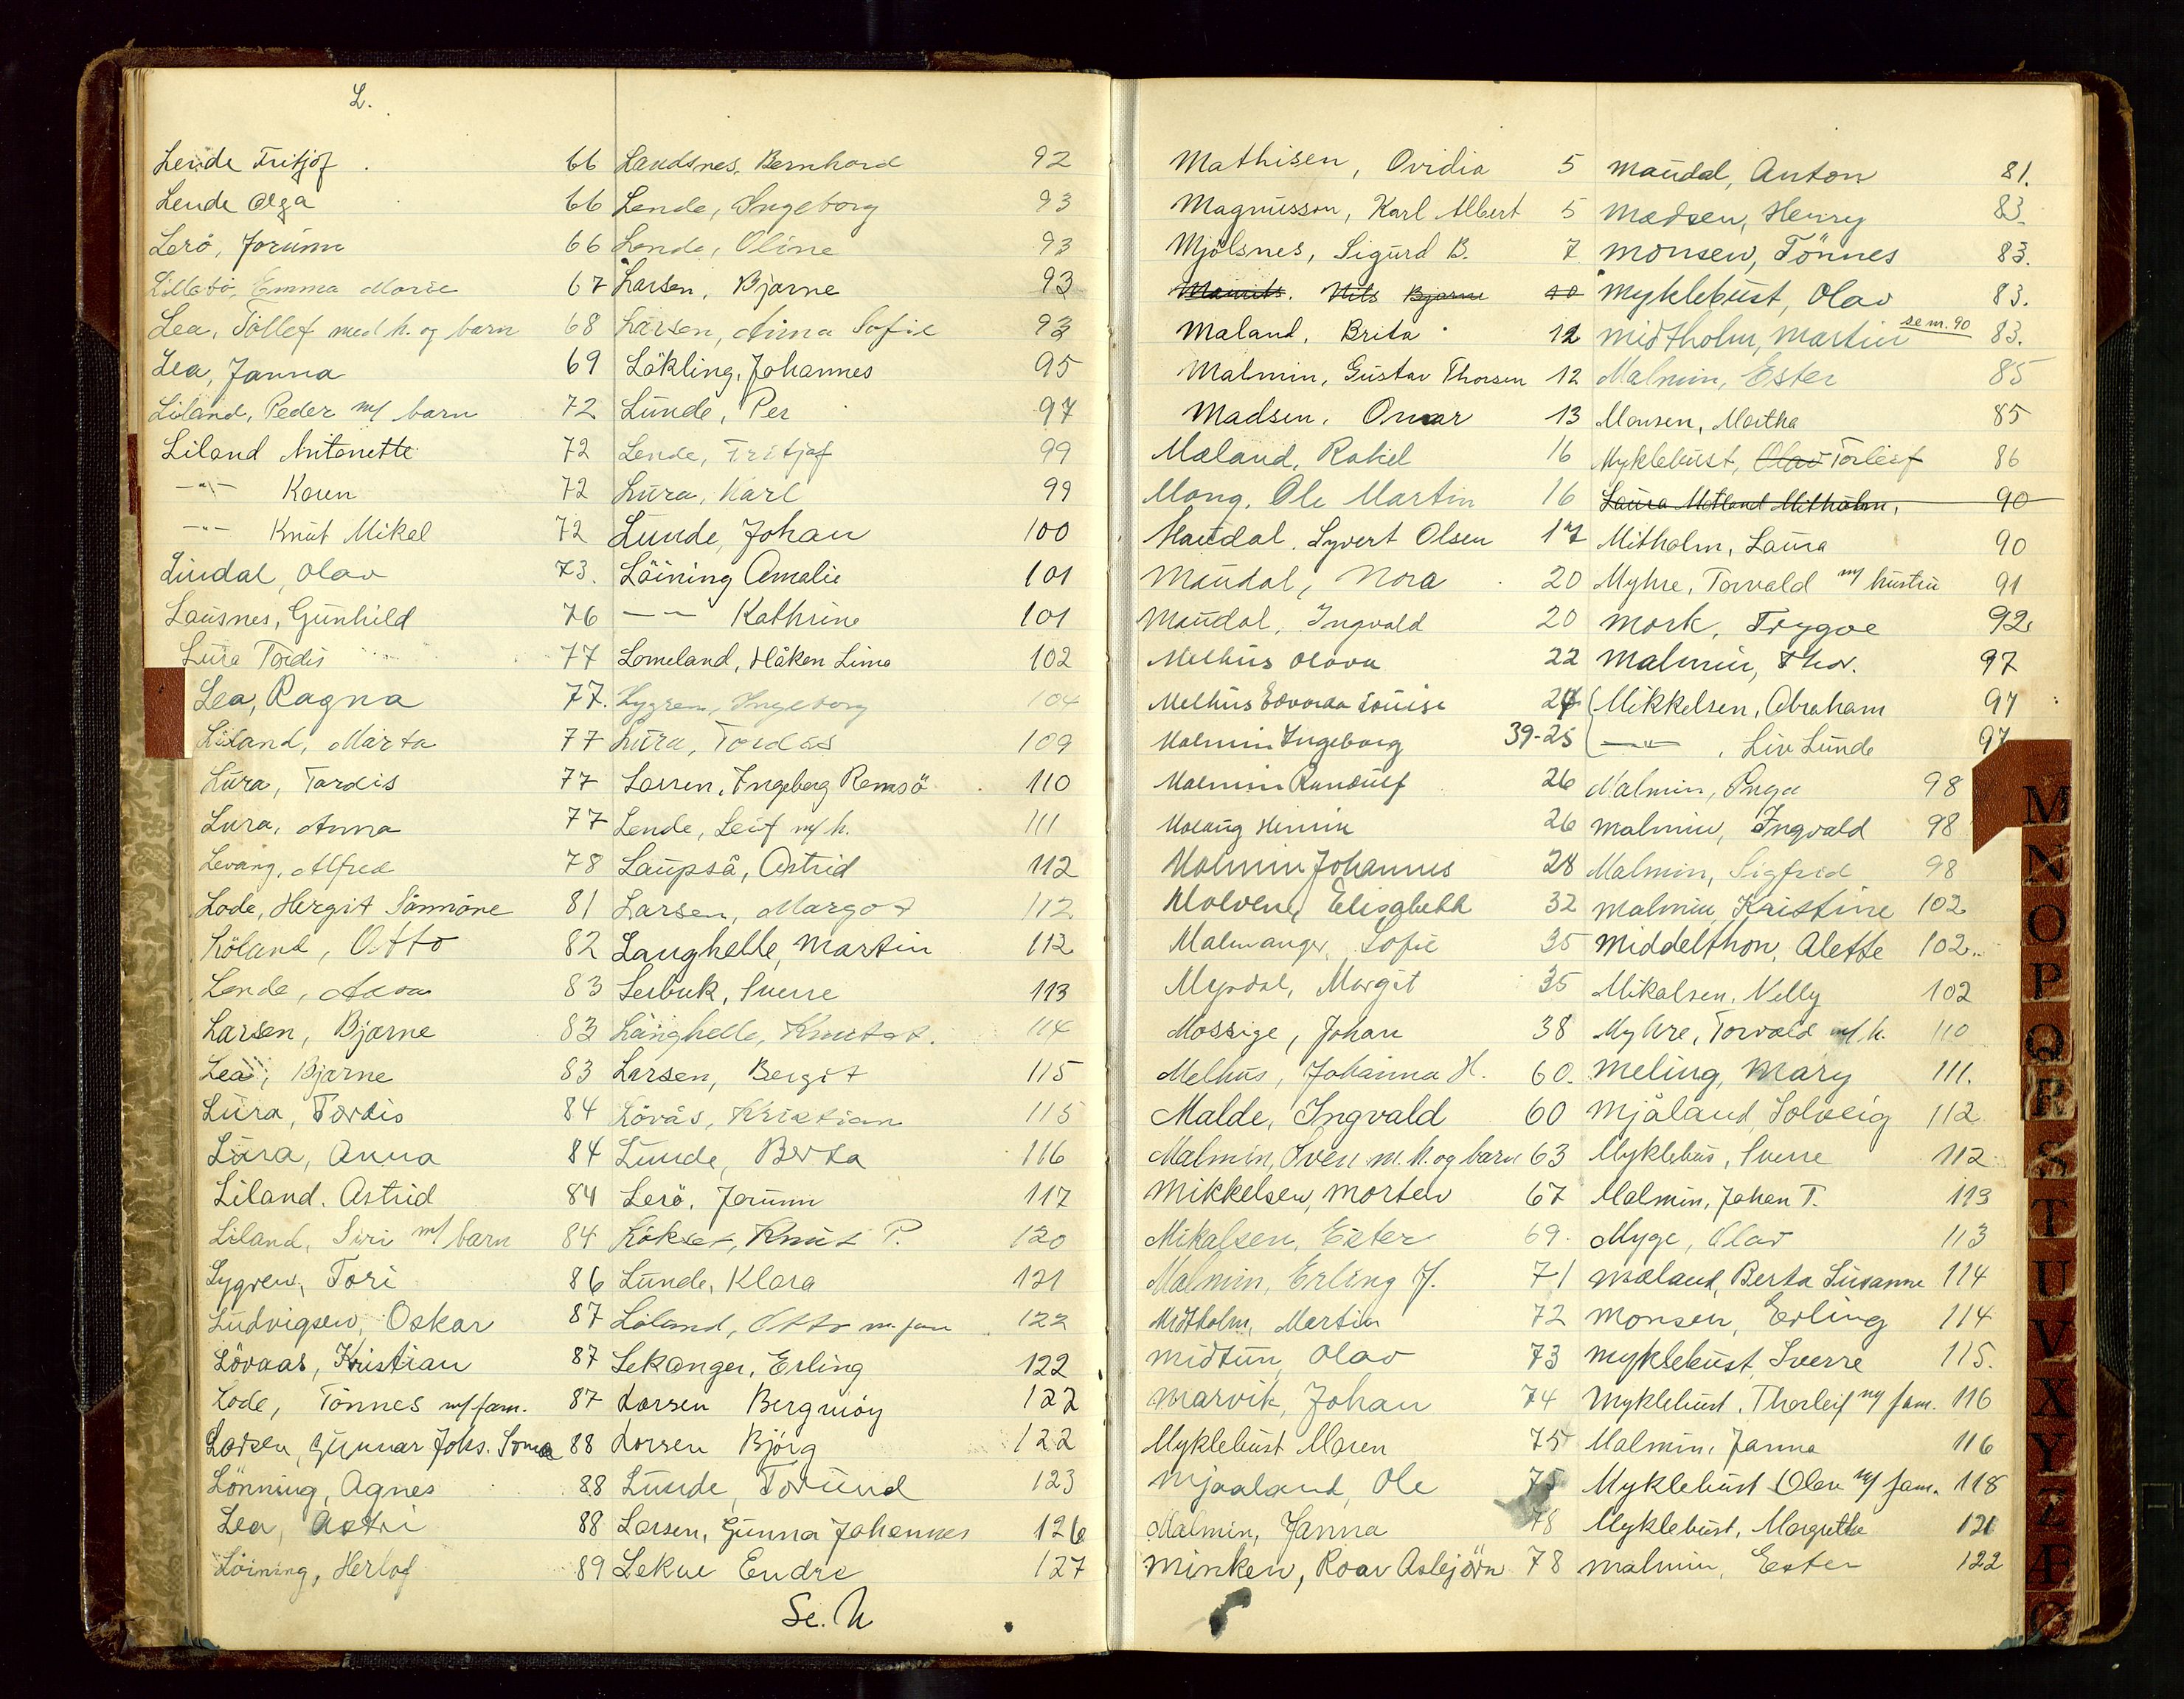 L.
Lende Fritjof 66
Lende Olga 66
Lerö, Jorunn 66
Lillebö, Emma Marie 67
Lea, Tollef med h. og barn 68
Lea, Janna 69
Liland, Peder m/ barn 72
Liland Antonette 72
—"— Karen 72
—"— Knut Mikal 72
Lindal, Olav 73.
Lausnes, Gunhild 76
Lura Tordis 77
Lea, Ragna 77.
Liland, Marta 77
Lura, Tordis 77
Lura, Anna 77
Levang, Alfred 78
Lode, Hergit Sömmöne 81
Löland, Otto 82
Lende, 83
Larsen, Bjarne 83
Lea, Bjarne 83
Lura, Tordis 84
Lura, Anna 84
Liland. Astrid 84
Liland, Siri m/ barn 84
Lygren, Tori 86
Ludvigsen, Oskar 87
Lövaas, Kristian 87
Lode, Tönnes m/fam. 87
Larsen, Gunnar Johs. Soma 88
Lönning, Agnes 88
Lea, Astri 88
Löining, Herlof 89
Landsnes, Bernhard 92
Lende, Ingeborg 93
Lende, Oline 93
Larsen, Bjarne 93
Larsen, Anna Sofie 93
Lökling, Johannes 95
Lunde, Per 97
Lende, Fritjof 99
Lura, Karl 99
Lunde, Johan 100
Löining Amalie 101
—"— Kathrine 101
Lomeland, Håken Lima 102
Lygren, Ingeborg 104
Lura, Tordis 109
Larsen, Ingeborg Ramsö 110
Lende, Leif m/h. 111
Laupså, Astrid 112
Larsen, Margot 112
Langhelle, Martin 112
Lerbuk, Sverre 113
Langhelle, 114
Larsen, Bergit 115
Lövås, Kristian 115
Lunde, Berta 116
Lerö, Jorunn 117
Lökset, Knut P. 120
Lunde, Klara 121
Löland, Otto m. fam 122
Lekanger, Erling 122
Larsen Bergmöy 122
Larsen Björg 122
Lunde, Torund 123
Larsen, Gunna Johannes 126
Lekve Endre 127
Se. N
Mathisen, Ovidia 5
Magnusson, Karl Albert 5
Mjölsnes, Sigurd B. 7
Maurits. Nils Bjarne 10
Maland, Brita 12
Malmin, Gustav Thorsen 12
Madsen, Omar 13
Mæland, Rakel 16
Mong, Ole Martin 16
Maudal, Syvert Olsen 17
Maudal, Nora 20
Maudal, Ingvald 20
Melhus Olava 22
Melhus Edvarda Louise 24
Malmin Ingeborg 39-25
Malmin Randulf 26
26
Malmin Johannes 28
Molvene, Elisabeth 32
Malmanger, Sofie 35
Myrdal, Margit 35
Mossige, Johan 38
Melhus, Johanna H. 60.
Malde, Ingvald 60
Malmin, Sven m. h. og barn 63
Mikkelsen, Morten 67
Mikalsen, Ester 69.
Malmin, Erling J. 71
Midtholm, Martin 72
Midtun, Olav 73
Marvik, Johan 74
Myklebust Maren 75
Mjaaland, Ole 75
Malmin, Janna 78
Minken, Roar Asbjörn 78
Maudal, Anton 81.
Madsen, Henry 83
Monsen, Tönnes 83.
Myklebust, Olav 83.
Midtholm, Martin se nr. 90 83.
Malmin, Ester 85
Monsen, Martha 85
Myklebust, Olav Torleif 86
Laura Metland Mitholm, 90
Mitholm, Laura 90
Myhre, Torvald m/ hustru 91
Mork, Trygve 92
Malmin, Thor. 97
Mikkelsen, Abraham 97
—"—, Liv Lunde 97
Malmin, Inga 98
Malmin, Ingvald 98
Malmin, Sigfrid 98
Malmin, Kristine 102
Middelthon, Alette 102..
Mikalsen, Nelly 102
Myhre, Torvald m/h. 110
Meling, Mary 111.
Mjåland, Solveig 112
Myklebus, Sverre 112
Malmin, Johan T. 113
Myge, Olav 113
Mæland, Berta Susanne 114
Monsen, Erling 114
Myklebust, Sverre 115.
Myklebust, Thorleif m/ fam. 116
Malmin, Janna 116
Myklebust Olav m/ fam. 118
Myklebust, Margrethe 121
Malmin, Ester 122
M
N
O
P
Q
R
S
T
U
V
X
Y
Z
Æ
Ø